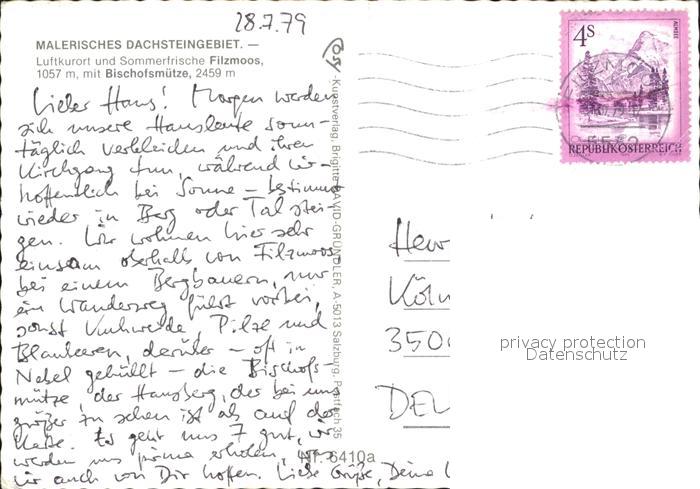 28.7.79
MALERISCHES DACHSTEINGEBIET. —
Luftkurort und Sommerfrische Filzmoos,
1057 m, mit Bischofsmütze, 2459 m
Lieber Hans! Morgen werden
sich unsere Hausleute sonn-
täglich verkleiden und ihren
Kirchgang tun, während wir –
hoffentlich bei Sonne – bestimmt
wieder in Berg oder Tal stei-
gen. Wir wohnen hier sehr
einsam oberhalb von Filzmoos,
bei einem Bergbauern, nur
ein Wanderweg führt vorbei,
sonst Kuhweide, Pilze und
Blaubeeren, darüber – oft in
Nebel gehüllt – die Bischofs-
mütze, der Hausberg, der bei uns
größer zu sehen ist als auf der
Karte. Es geht uns 7 gut, wir
werden uns prima erholen, was
wir auch von Dir hoffen. Liebe Grüße, Deine
Kunstverlag Brigitte DAVID-GRÜNDLER, A-5013 Salzburg, Postfach 35
Nr. 6410a
4S
ALMSEE
REPUBLIK ÖSTERREICH
Herr
Köln
350
privacy protection
Datenschutz